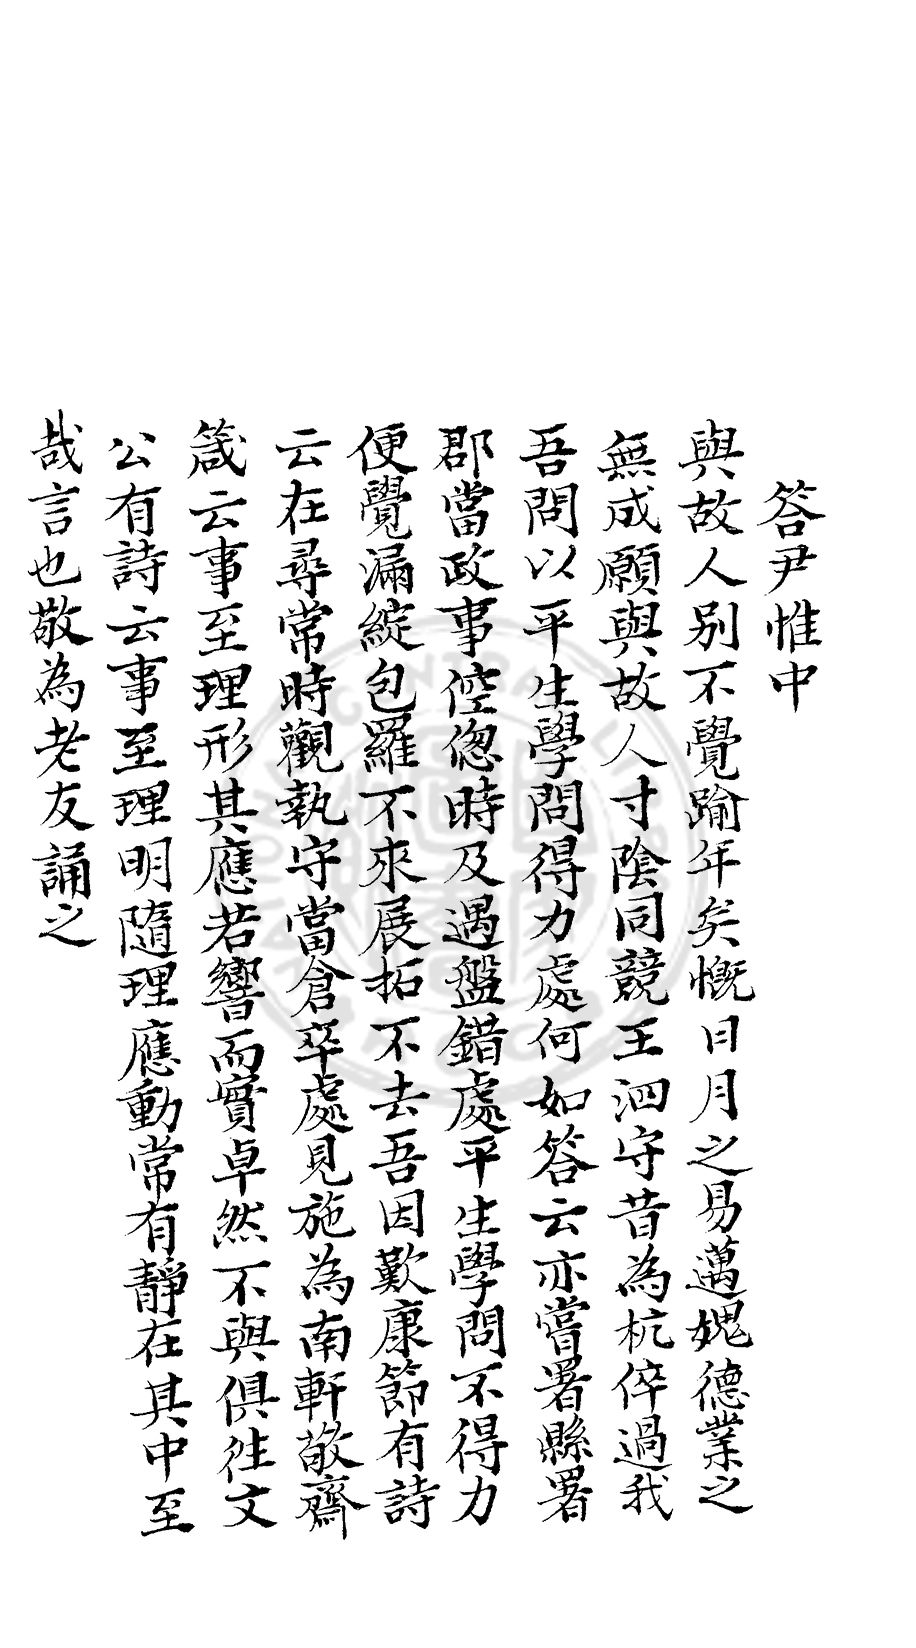 答尹惟中
與故人別不覺踰年矣慨日月之易邁媿德業之
無成願與故人寸陰同競王泗守昔為杭倅過我
吾問以平生學問得力處何如答云亦嘗署縣署
郡當政事倥偬時及遇盤錯處平生學問不得力
便覺漏綻包羅不來展拓不去吾因歎康節有詩
云在尋常時觀執守當倉卒處見施為南軒敬齋
箴云事至理形其應若響而實卓然不與俱徃文
公有詩云事至理明隨理應動常有靜在其中至
哉言也敬為老友誦之